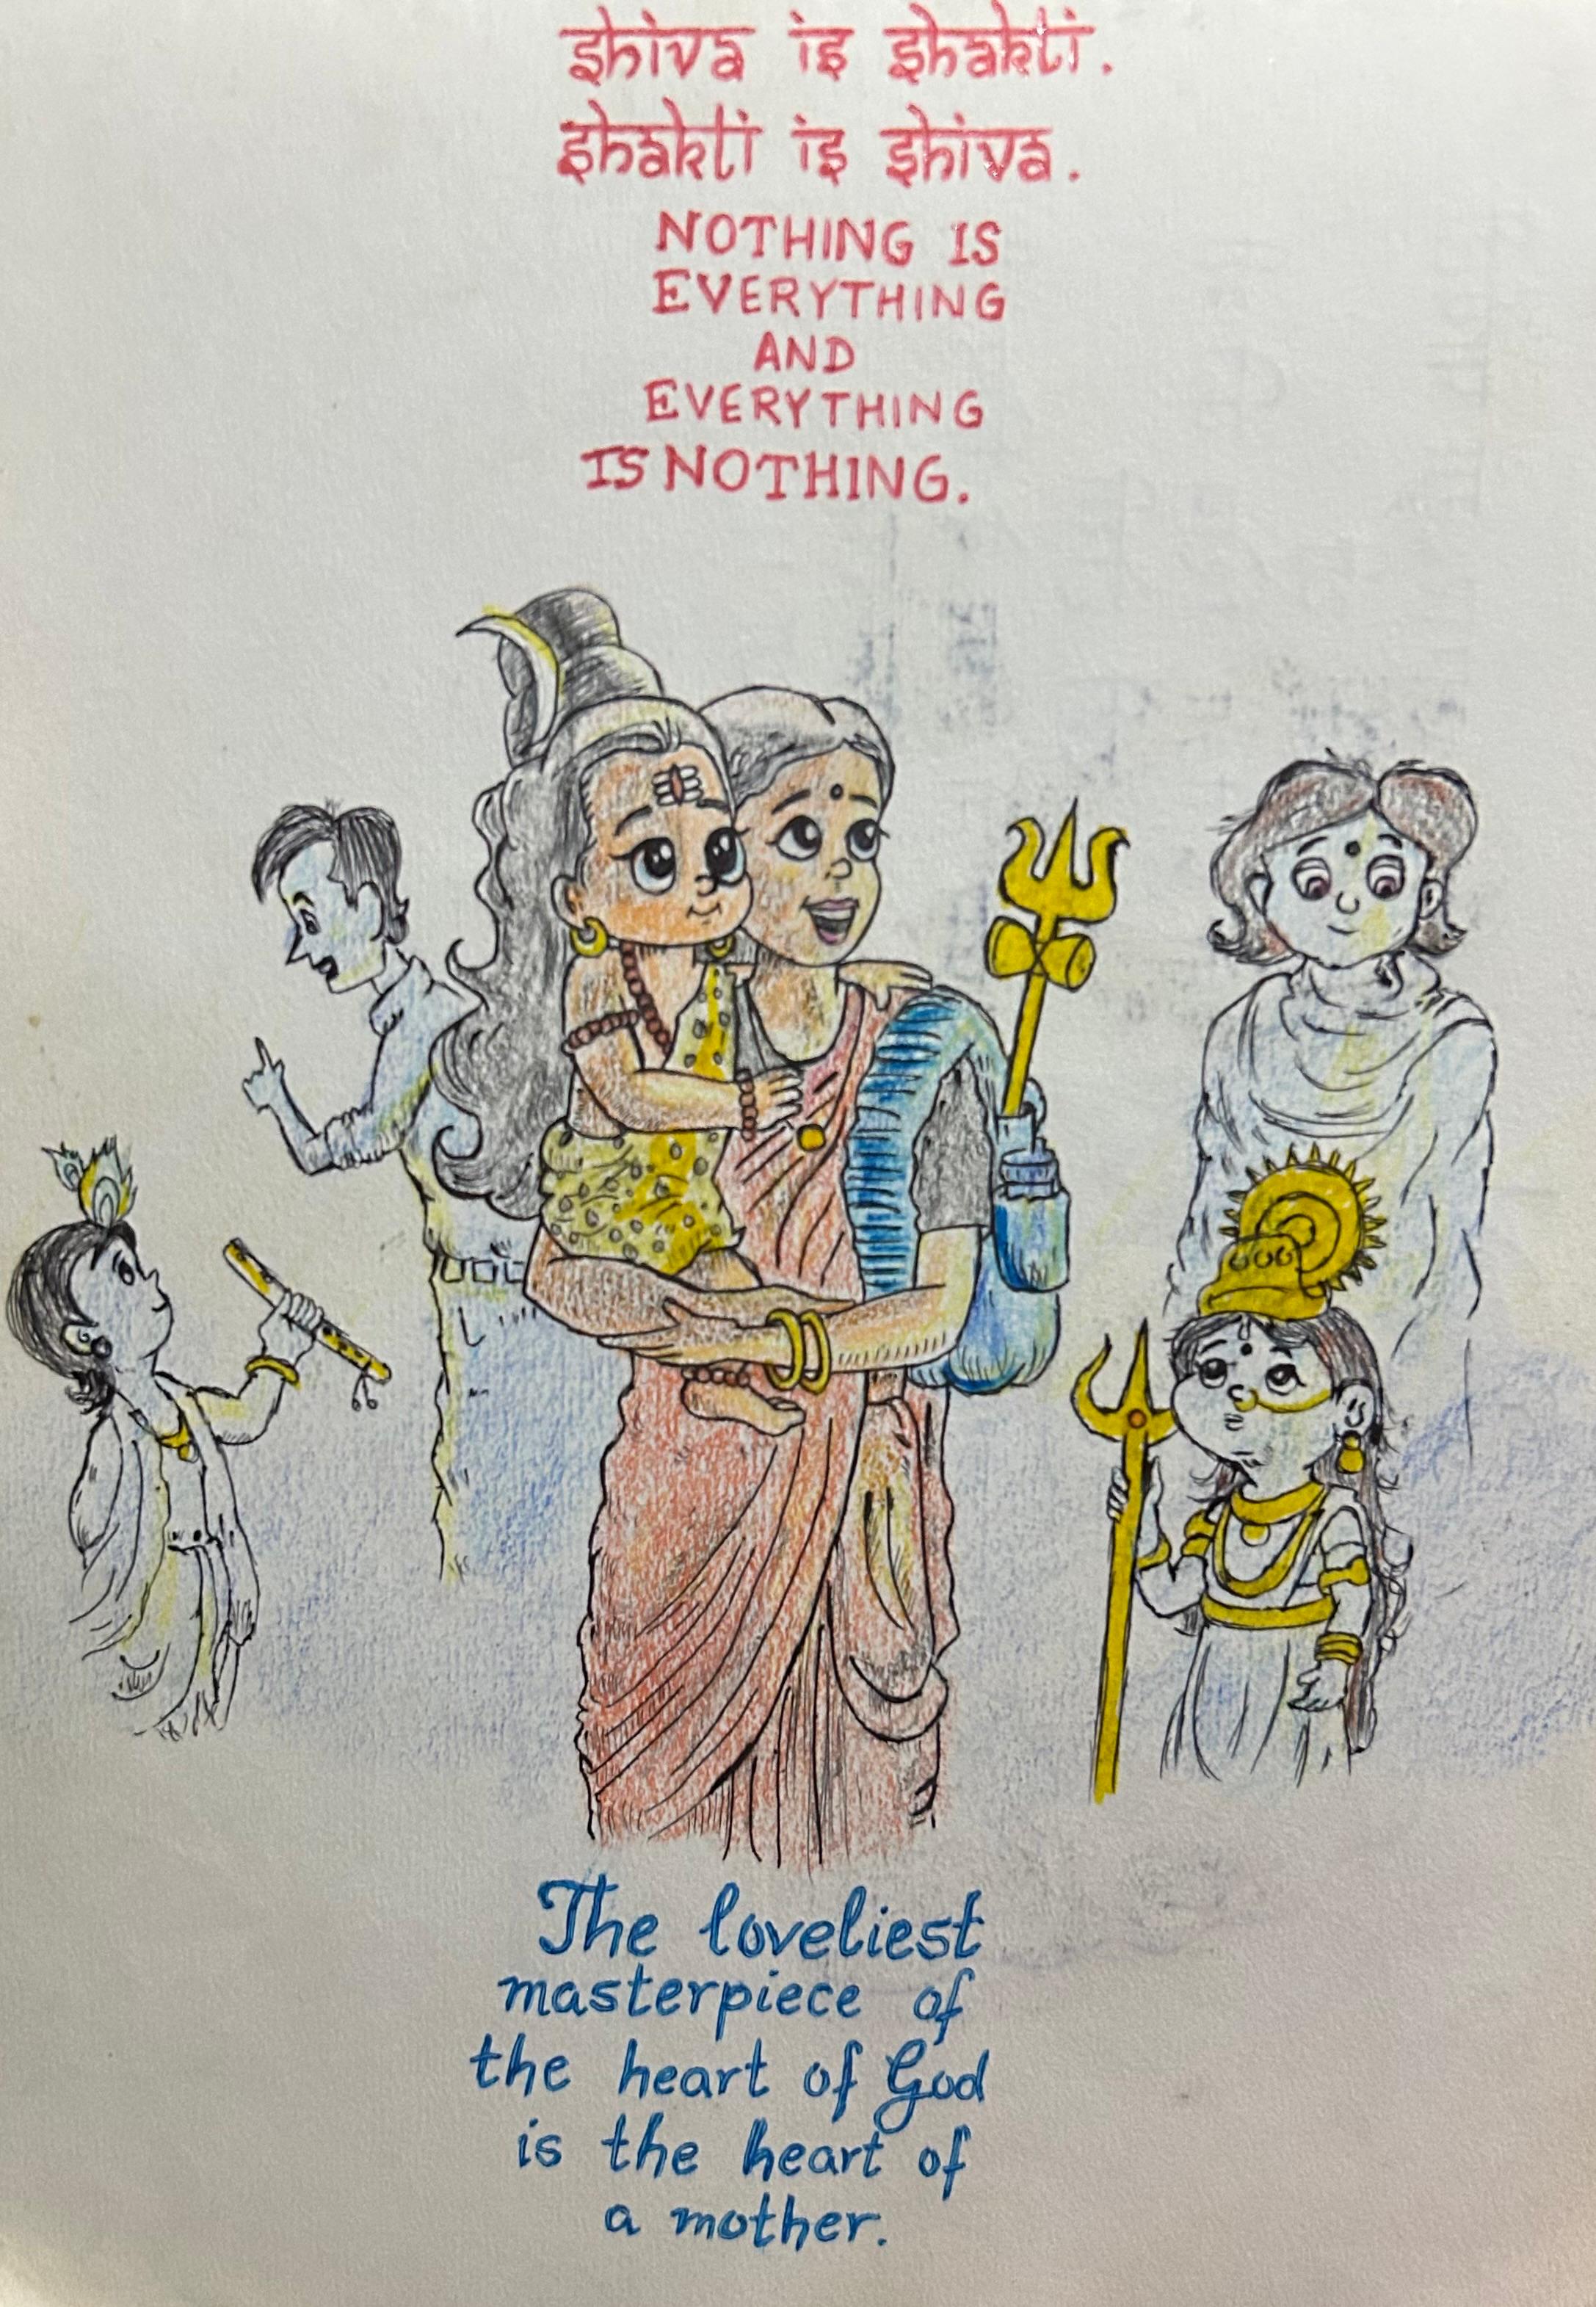 shiva is shakti.
shakti is shiva.
NOTHING IS
EVERYTHING
AND
EVERYTHING
IS NOTHING.
The loveliest
masterpiece of
the heart of God
is the heart of
a mother.